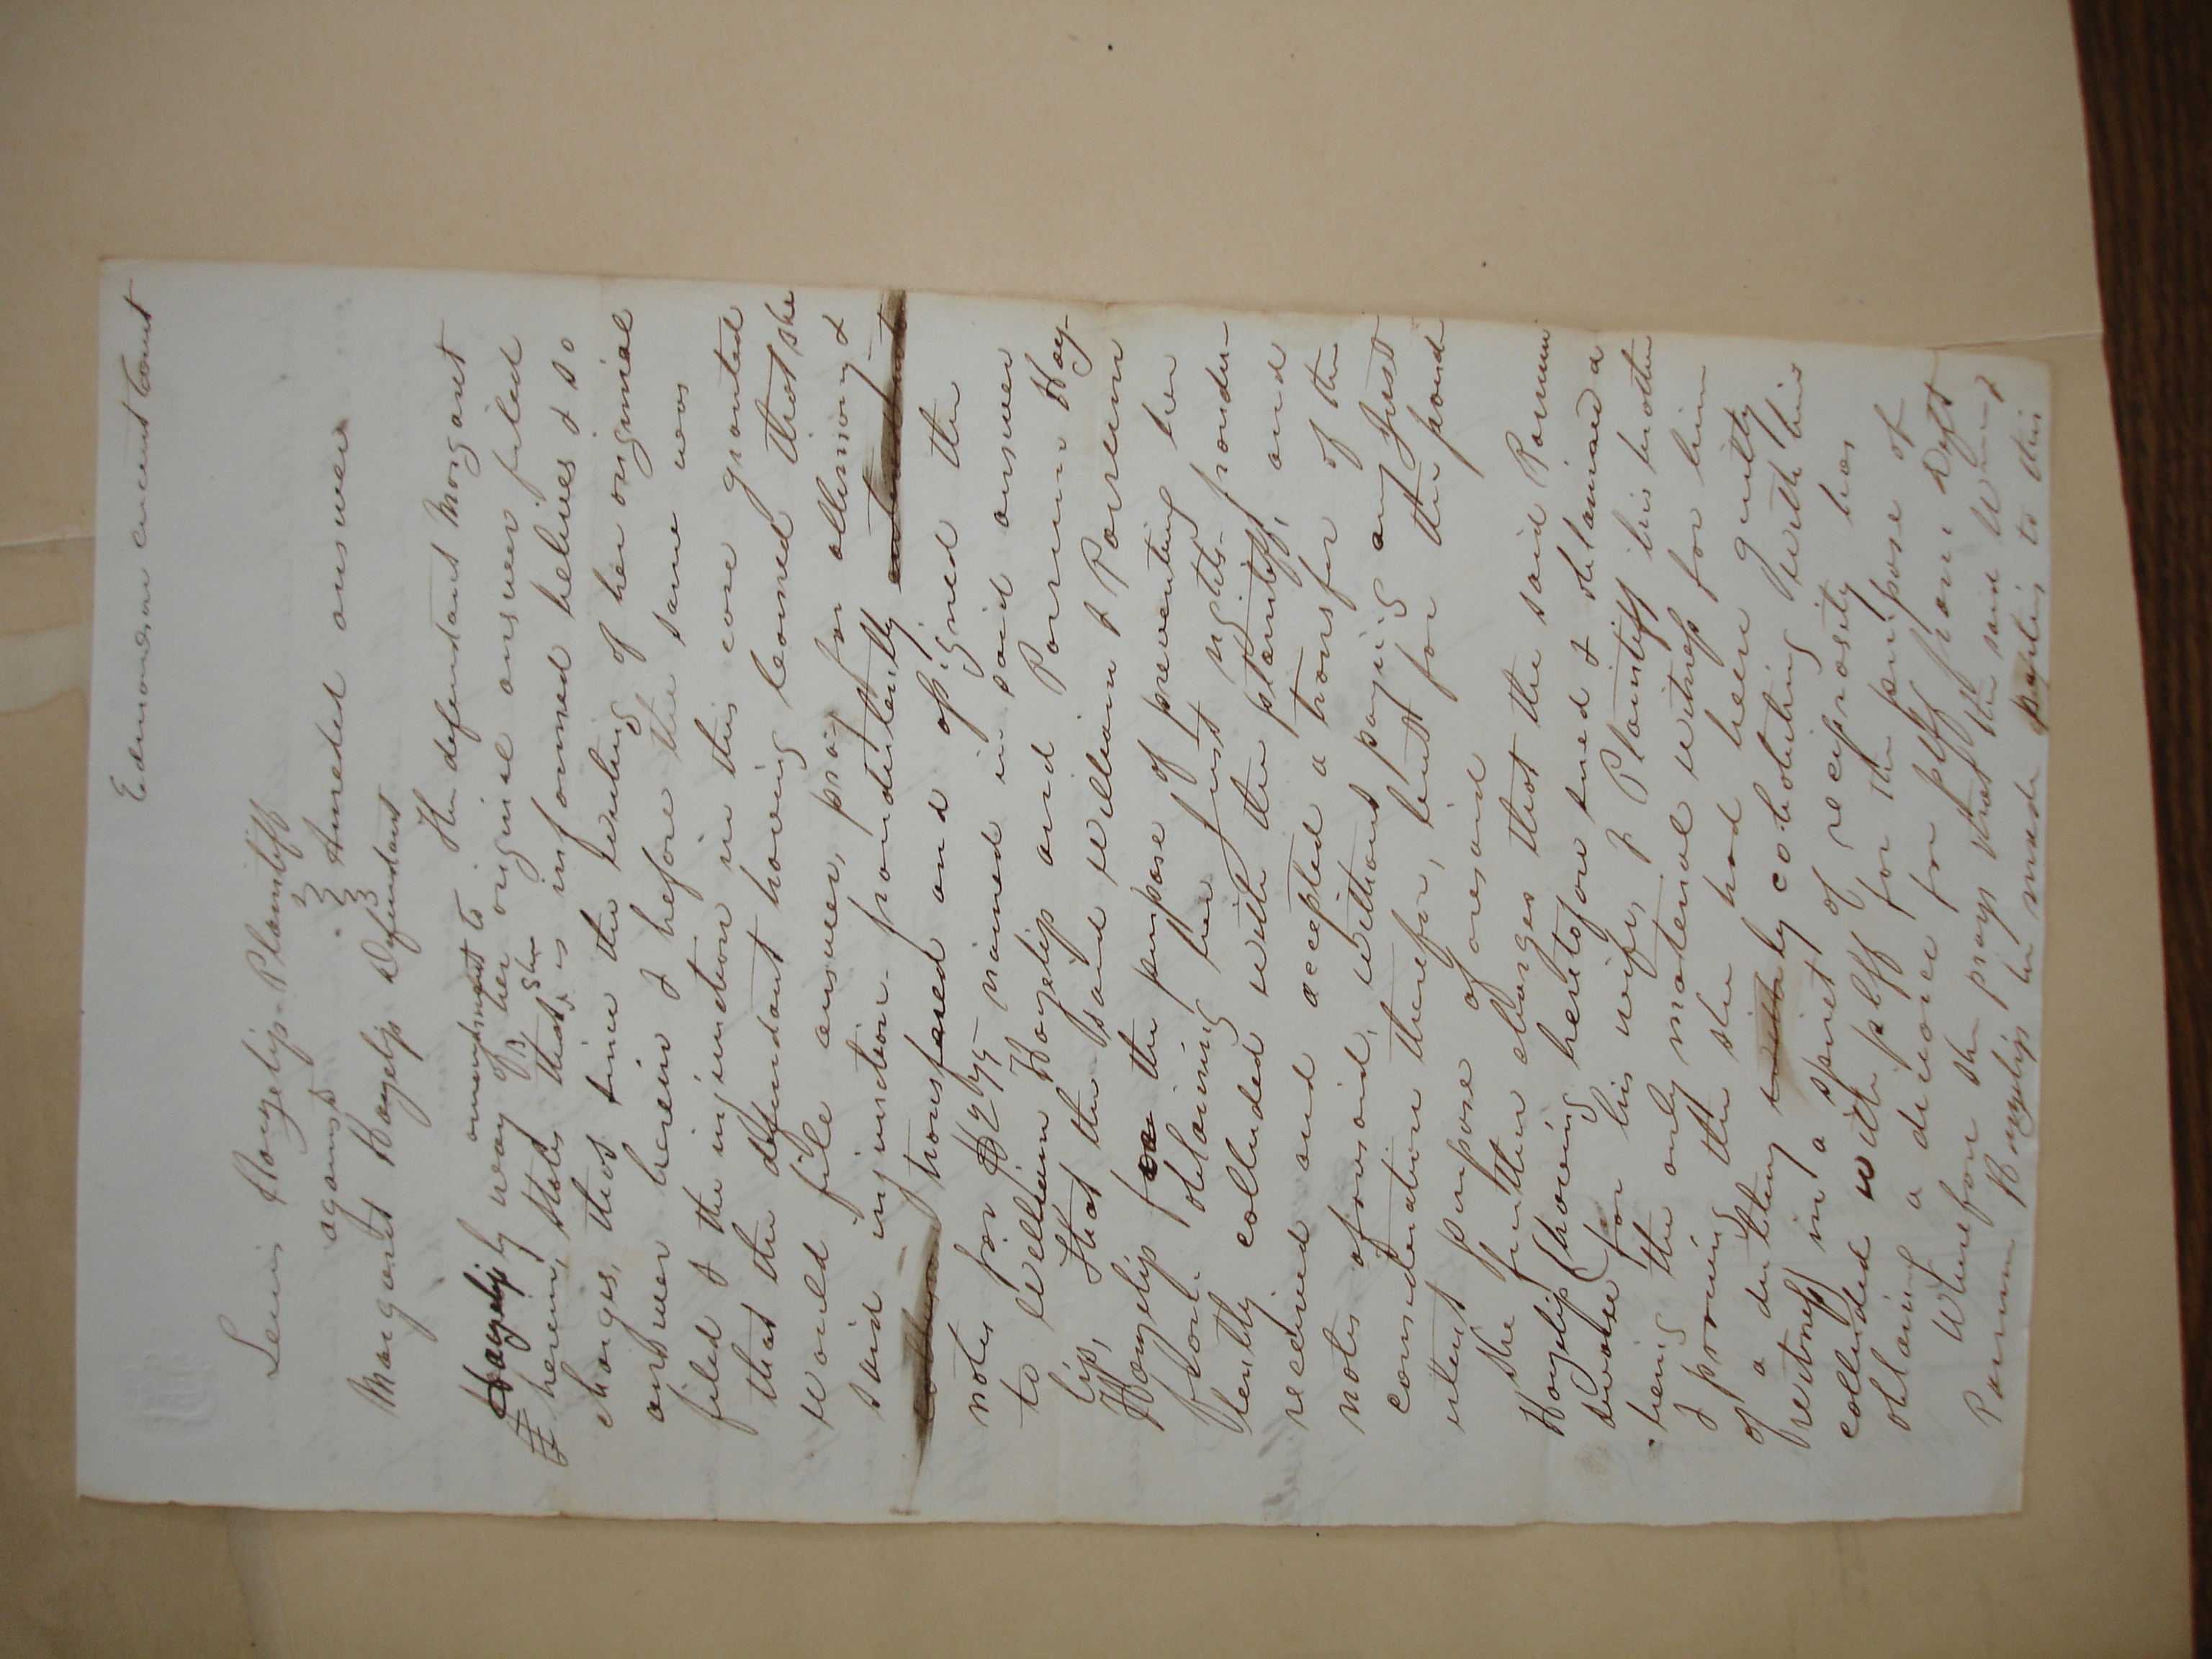 Edmondson circuit Court
Lewis Hazelip Plaintiff
against } Amended answer
Margaret Hazelip Defendant
The defendant Margaret
Hazelip by way of amendment to her original answer filed
herein, states that she is informed believes & so
charges, that since the writing of her original
answer herein & before the same was
filed & the injunction in this case granted
that the defendant having learned that she
would file answer, pray for allimony &
said injunction - fraudulently
transfered and assigned the
notes for $2975 named in said answer
to William Hazelip and Parson Haz-
lip, That the said William & Parson
Hazelip for the purpose of preventing her
from obtaining her just rights - fraudu-
lently colluded with the plaintiff, and
received and accepted a transfer of the
notes aforesaid, without paying any just
consideration therefor, but for the fraud
ulent purpose aforesaid
She further charges that the said Parson
Hazelip (having heretofore sued & obtained a
divorce for his wife, & Plaintiff his brother
being the only material witness for him
& proving the she had been guilty
of adultery by cohabiting with him
witness in a spirit of reciprosity has
colluded with plff for the purpose of
obtaining a divorce for plff from Deft
Wherefore she prays that the said Wm &
Parson Hazelip be made parties to this